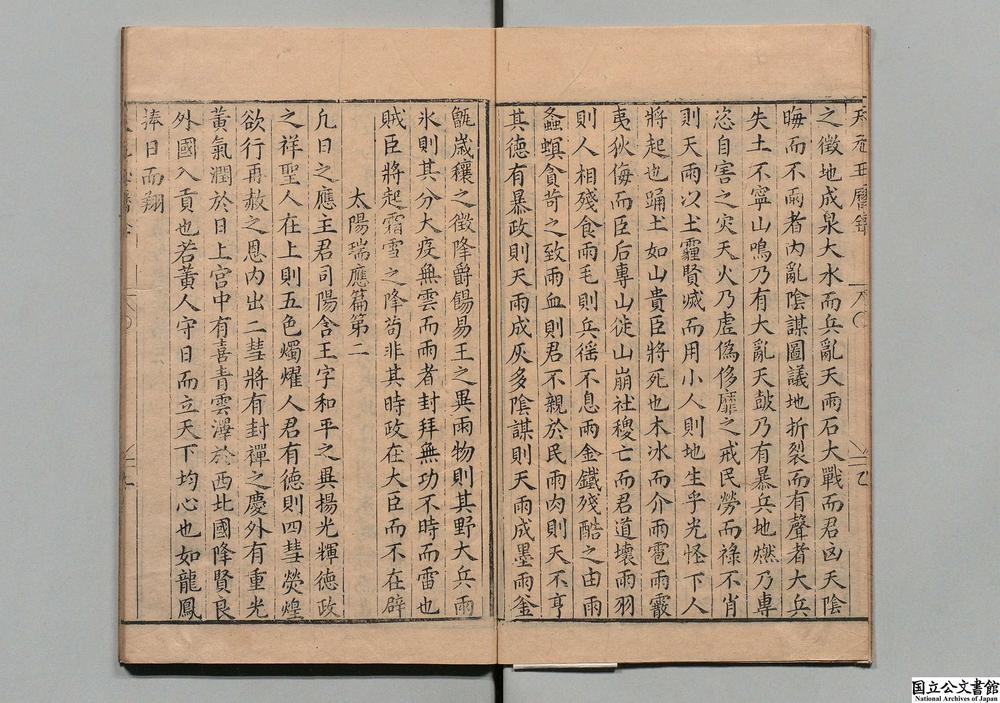 之徵地成泉大水而兵亂天雨石大戰而君凶天陰
晦而不雨者內亂陰謀圖議地折裂而有聲者大兵
失土不寧山鳴乃有大亂天鼓乃有暴兵地燃乃專
恣自害之灾天火乃虛偽侈靡之戒民勞而祿不肖
則天雨以土霾賢滅而用小人則地生乎光怪下人
將起也踊土如山貴臣將死也木冰而介雨雹雨霰
夷狄侮而臣后專山徙山崩社稷亡而君道壞雨羽
則人相殘食雨毛則兵徭不息雨金鐵殘酷之由雨
螽螟貪苛之致雨血則君不親於民雨肉則天不享
其德有暴政則天雨成灰多陰謀則天雨成墨雨釜
甑歲穰之徵降爵餳易王之異雨物則其野大兵雨
氷則其分大疫無雲而雨者封拜無功不時而雷也
賊臣將起霜雪之降苟非其時政在大臣而不在辟
太陽瑞應篇第二
凡日之應主君司陽含王字和平之異揚光輝德政
之祥聖人在上則五色燭耀人君有德則四彗熒煌
欲行再赦之恩內出二彗將有封禪之慶外有重光
黃氣潤於日上宮中有喜青雲澤於西北國降賢良
外國入貢也若黃人守日而立天下均心也如龍鳳
捧日而翔
国立公文書館
National Archives of Japan